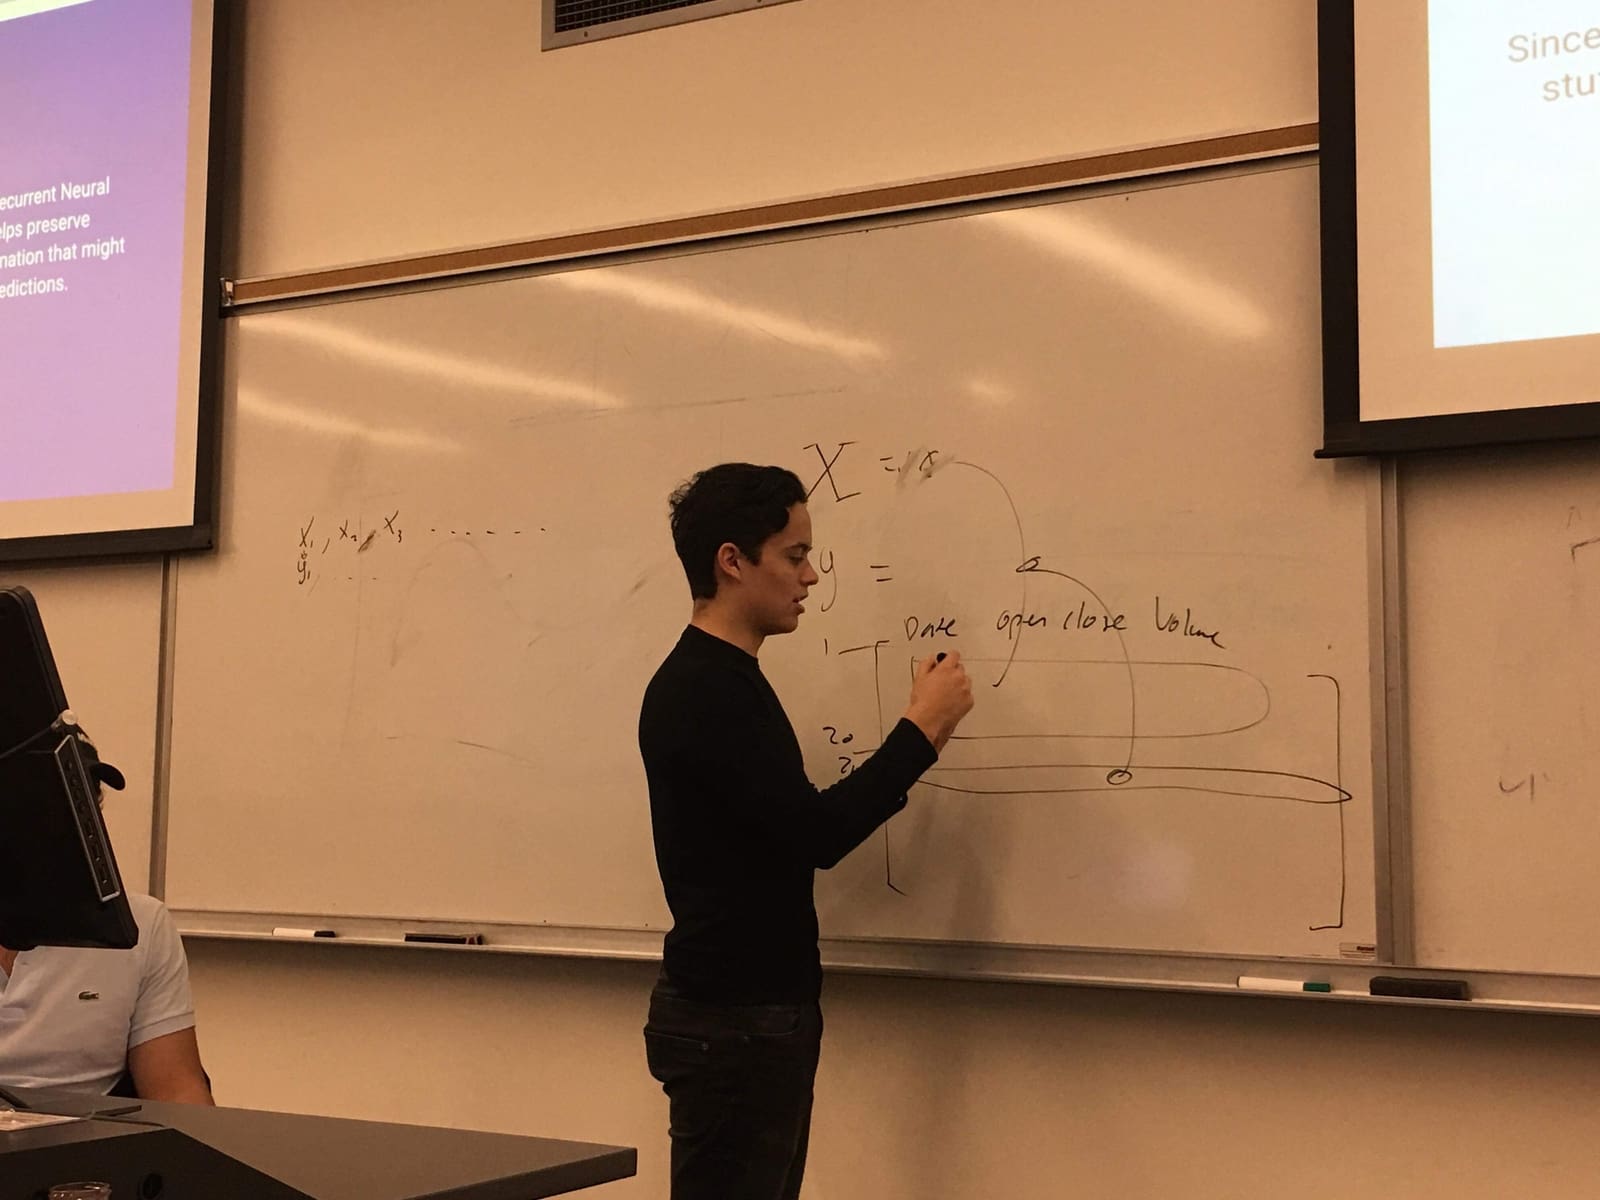 ecurrent Neural
elps preserve
nation that might
edictions.
Since
stu
X₁, X₂, X₃ . . . . . .
y₁ . . .
X = x
y =
Date open close Volume
1
20